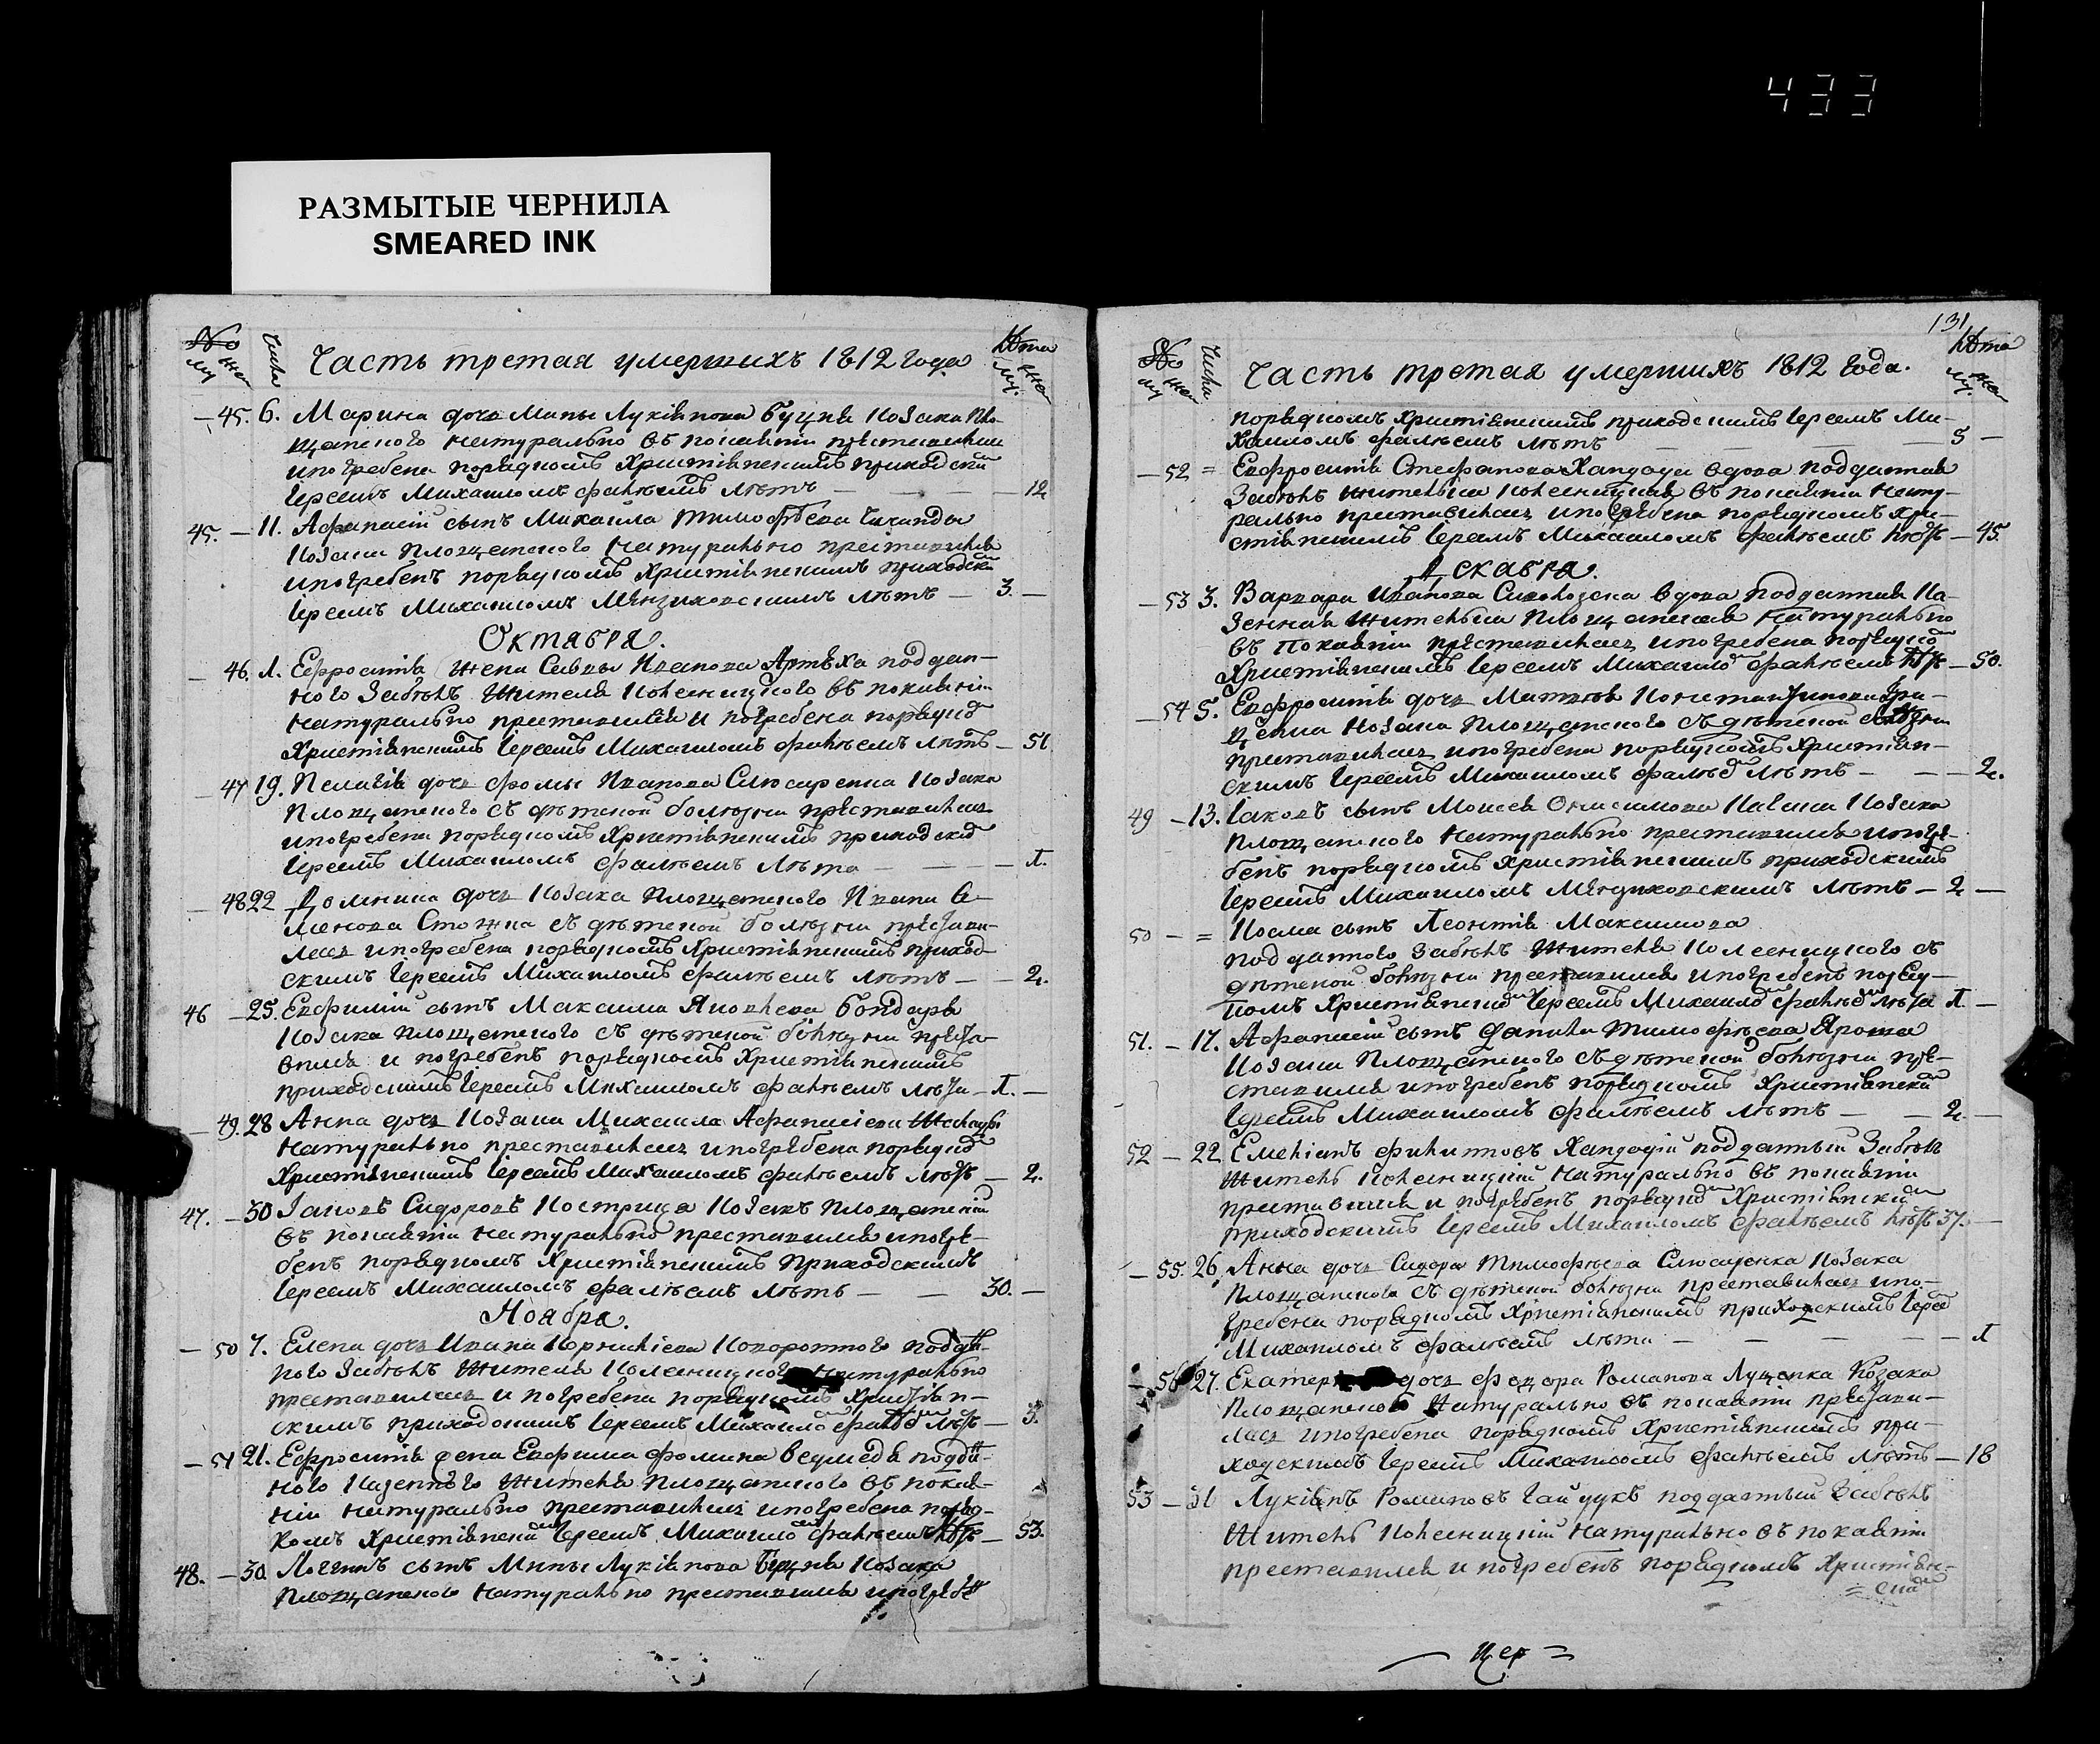 433
РАЗМЫТЫЕ ЧЕРНИЛА
SMEARED INK
№ Числа Часть третая умершихъ 1812 Года Лѣта
му же му. же
— 45. 6. Марина дочь Мины Лукіянова Буцня Козака Пло-
щанского натурально въ покаяніи преставилась
и погребена поряднимъ Христіянскимъ приходски
Іереемъ Михаиломъ Фалѣемъ лѣтъ — — — 12
45. — 11. Афанасій сынъ Михаила Тимофѣева
Козака Площанского натурально преставился
и погребенъ поряднимъ Христіянскимъ приходски
Іереемъ Михаиломъ лѣтъ — 3. —
Октября.
— 46. 1. Ефросинія жена Саввы Иванова поддан-
ного Забѣлѣ жителя Колесницкого въ покаяніи
натурально преставилася и погребена порядно
Христіянскимъ Іереемъ Михаиломъ Фалѣемъ лѣтъ — 51
— 47 19. Пелагія дочь Фомы Иванова Слюсаренка Козака
Площанского съ дѣтской болѣзни преставилась
и погребена поряднимъ Христіянскимъ приходско
Іереемъ Михаиломъ Фалѣемъ лѣта — — — 1.
— 48 22 Домнина дочь Козака Площанского Ивана Се-
менова съ дѣтской болѣзни престави-
лась и погребена поряднимъ Христіянскимъ приход
скимъ Іереемъ Михаиломъ Фалѣемъ лѣтъ — — 2.
46 — 25. Евфимій сынъ Максима Яковлева Бондаря
Козака Площанского съ дѣтской болѣзни преста-
вился и погребенъ поряднимъ Христіянскимъ
приходскимъ Іереемъ Михаиломъ Фалѣемъ лѣта — 1. —
— 49. 28 Анна дочь Козака Михаила Афанасіева
натурально преставилась и погребена порядно
Христіянскимъ Іереемъ Михаиломъ Фалѣемъ лѣтъ — 2.
47. — 30 Іаковъ Сидоровъ Кострица Козакъ Площанскій
въ покаяніи натурально преставился и погре-
бенъ поряднимъ Христіянскимъ приходскимъ
Іереемъ Михаиломъ Фалѣемъ лѣтъ — — 30. —
Ноября.
— 50 7. Елена дочь Ивана Корнилиева подан-
ного Забѣлѣ жителя Колесницкого натурально
преставилась и погребена поряднимъ Христіян-
скимъ приходскимъ Іереемъ Михаило Фалѣемъ лѣтъ — 3.
— 51 21. Ефросинія жена Евфима Фомина Ведмедя подан-
ного Казенного жителя Площанского въ покая-
ніи натурально преставилась и погребена поряд-
номъ Христіянскимъ Іереемъ Михаило Фалѣемъ лѣтъ — 53.
48. — 30. Логгинъ сынъ Мины Лукіянова Буцня Козака
Площанского натурально преставился и погребенъ
131
№ Числа Часть третая умершихъ 1812 Года. Лѣта
му же му. же
поряднимъ Христіянскимъ приходскимъ Іереемъ Ми-
хаиломъ Фалѣемъ лѣтъ — — — 5 —
— 52 = Евфросинія Стефанова вдова подданная
Забѣлѣ жителька Колесницкая въ покаяніи нату-
рально преставилась и погребена поряднимъ Хри-
стіянскимъ Іереемъ Михаиломъ Фалѣемъ лѣтъ — 45.
Декабря.
— 53 3. Варвара Иванова вдова подданная Ка-
зенная жителька Площанская натурально
въ покаяніи преставилась и погребена порядно
Христіянскимъ Іереемъ Михаило Фалѣемъ лѣтъ — 50.
— 54 5. Евфросинія дочь Матвѣя Константинова
Козака Площанского съ дѣтской болѣзни
преставилась и погребена поряднимъ Христіян-
скимъ Іереемъ Михаиломъ Фалѣемъ лѣтъ — — — 2.
49 — 13. Іаковъ сынъ Моисея Онисимова Козака
Площанского натурально преставился и погре-
бенъ поряднимъ Христіянскимъ приходскимъ
Іереемъ Михаиломъ лѣтъ — 2 —
50 — = Косма сынъ Леонтія Максимова
подданого Забѣлѣ жителя Колесницкого съ
дѣтской болѣзни преставился и погребенъ поряд-
номъ Христіянско Іереемъ Михаило Фалѣемъ лѣта 1. —
51. — 17. Афанасій сынъ Данила Тимофѣева Яроша
Козака Площанского съ дѣтской болѣзни пре-
ставился и погребенъ поряднимъ Христіянски
Іереемъ Михаиломъ Фалѣемъ лѣтъ — — 2. —
52 — 22 Емеліянъ Филиповъ подданный Забѣлѣ
житель Колесницкій натурально въ покаяніи
преставился и погребенъ порядно Христіянски
приходскимъ Іереемъ Михаиломъ Фалѣемъ лѣтъ 37. —
— 55. 26. Анна дочь Сидора Тимофѣева Слюсаренка Козака
Площанского съ дѣтской болѣзни преставилась и по-
гребена поряднимъ Христіянскимъ приходскимъ Іерее
Михаиломъ Фалѣемъ лѣта — — — — 1
— 56 27. дочь Федора Романова Луценка Козака
Площанского натурально въ покаяніи престави-
лась и погребена поряднимъ Христіянскимъ при-
ходскимъ Іереемъ Михаиломъ Фалѣемъ лѣтъ — 18
53 — 31 Лукіянъ Романовъ Гайдукъ подданный Забѣлѣ
житель Колесницкій натурально въ покаяніи
преставился и погребенъ поряднимъ Христіян-
= ски
— Цер =